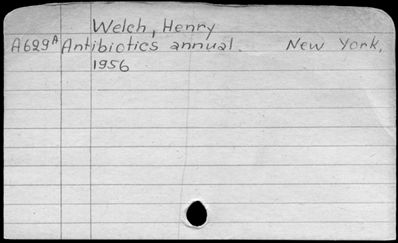 Welch, Henry
A629A Antibiotics annual. New York,
1956